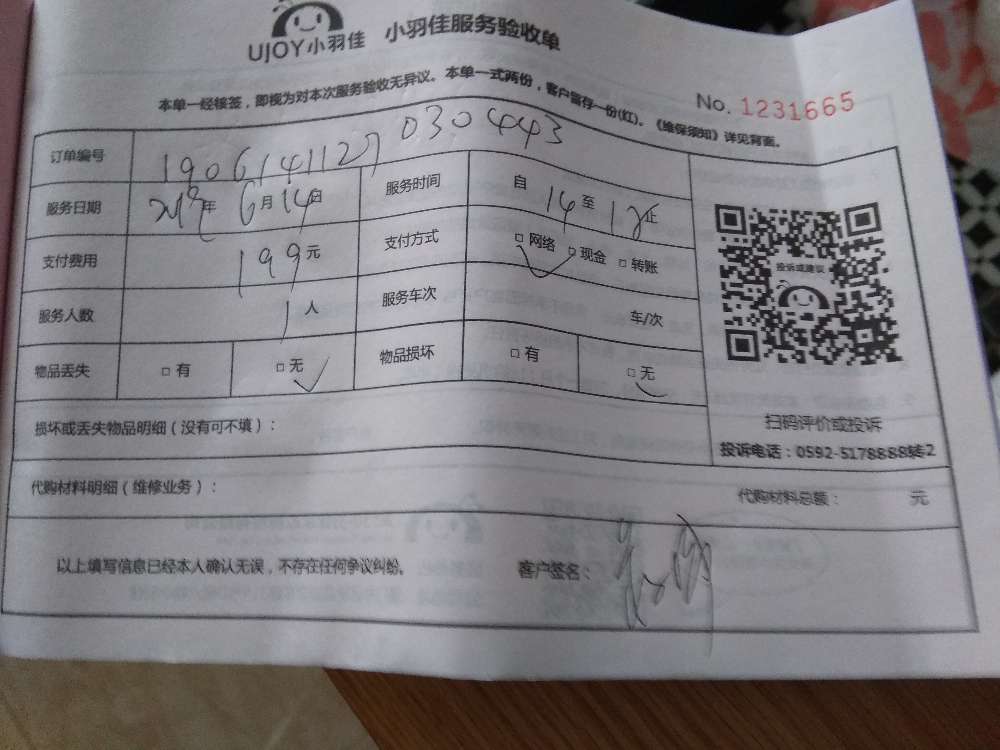 UJOY小羽佳 小羽佳服务验收单
本单一经核签，即视为对本次服务验收无异议。本单一式两份，客户留存一份(红)。《维保须知》详见背面。
No. 1231665
订单编号 1906141127030443
服务日期 2019年 6月14日 服务时间 自 14 至 18 止
支付费用 199元 支付方式 □网络 □现金 □转账
服务人数 1人 服务车次 车/次
物品丢失 □有 □无 物品损坏 □有 □无
投诉或建议
扫码评价或投诉
投诉电话：0592-5178888转2
损坏或丢失物品明细（没有可不填）：
代购材料明细（维修业务）： 代购材料总额： 元
以上填写信息已经本人确认无误，不存在任何争议纠纷。 客户签名：